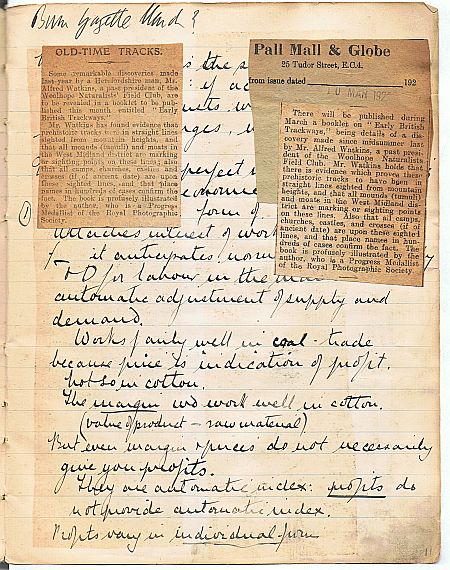 Birm Gazette March ?
OLD-TIME TRACKS.
Some remarkable discoveries made
last year by a Herefordshire man, Mr.
Alfred Watkins, a past president of the
Woolhope Naturalists' Field Club, are
to be revealed in a booklet to be pub-
lished this month entitled "Early
British Trackways."
Mr. Watkins has found evidence that
prehistoric tracks were in straight lines
sighted from mountain heights, and
that all mounds (tumuli) and moats in
the West Midland district are marking
or sighting points on these lines; also
that all camps, churches, castles and
crosses (if of ancient date) are upon
these sighted lines, and that place
names in hundreds of cases confirm the
fact. The book is profusely illustrated
by the author, who is a Progress
Medallist of the Royal Photographic
Society.
Pall Mall & Globe
25 Tudor Street, E.C.4.
from issue dated 192
10 MAR 192
There will be published during
March a booklet on "Early British
Trackways," being details of a dis-
covery made since midsummer last
by Mr. Alfred Watkins, a past presi-
dent of the Woolhope Naturalists
Field Club. Mr. Watkins holds that
there is evidence which proves their
prehistoric tracks to have been in
straight lines sighted from mountain
heights, and that all mounds (tumuli)
and moats in the West Midland dis-
trict are marking or sighting points
on these lines. Also that all camps,
churches, castles, and crosses (if of
ancient date) are upon these sighted
lines, and that place names in hun-
dreds of cases confirm the fact. The
book is profusely illustrated by the
author, who is a Progress Medallist
of the Royal Photographic Society.
is the
if
perfect
economic
form of
attaches interest of work
it anticipates
for labour in the
automatic adjustment of supply and
demand.
Works fairly well in coal-trade
because price is indication of profit.
Not so in cotton.
The margin wd work well in cotton.
(value of product - raw material)
But even margin & prices do not necessarily
give you profits.
They are automatic index: profits do
not provide automatic index.
Profits vary in individual firm